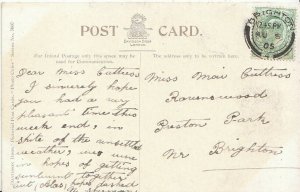 POST CARD.
For Inland Postage only this space may be used for Communication.
The address only to be written here.
BRIGHTON
12.45 PM
AU 8
05
Dear Miss Cuttress
I sincerely hope
you had a very
pleasant time this
week end, in
spite of the unsettled
weather, we were
in hopes of getting
sunburnt together
but (alas) hopes dashed
Miss Mair Cuttress
Ravenswood
Preston Park
Nr Brighton